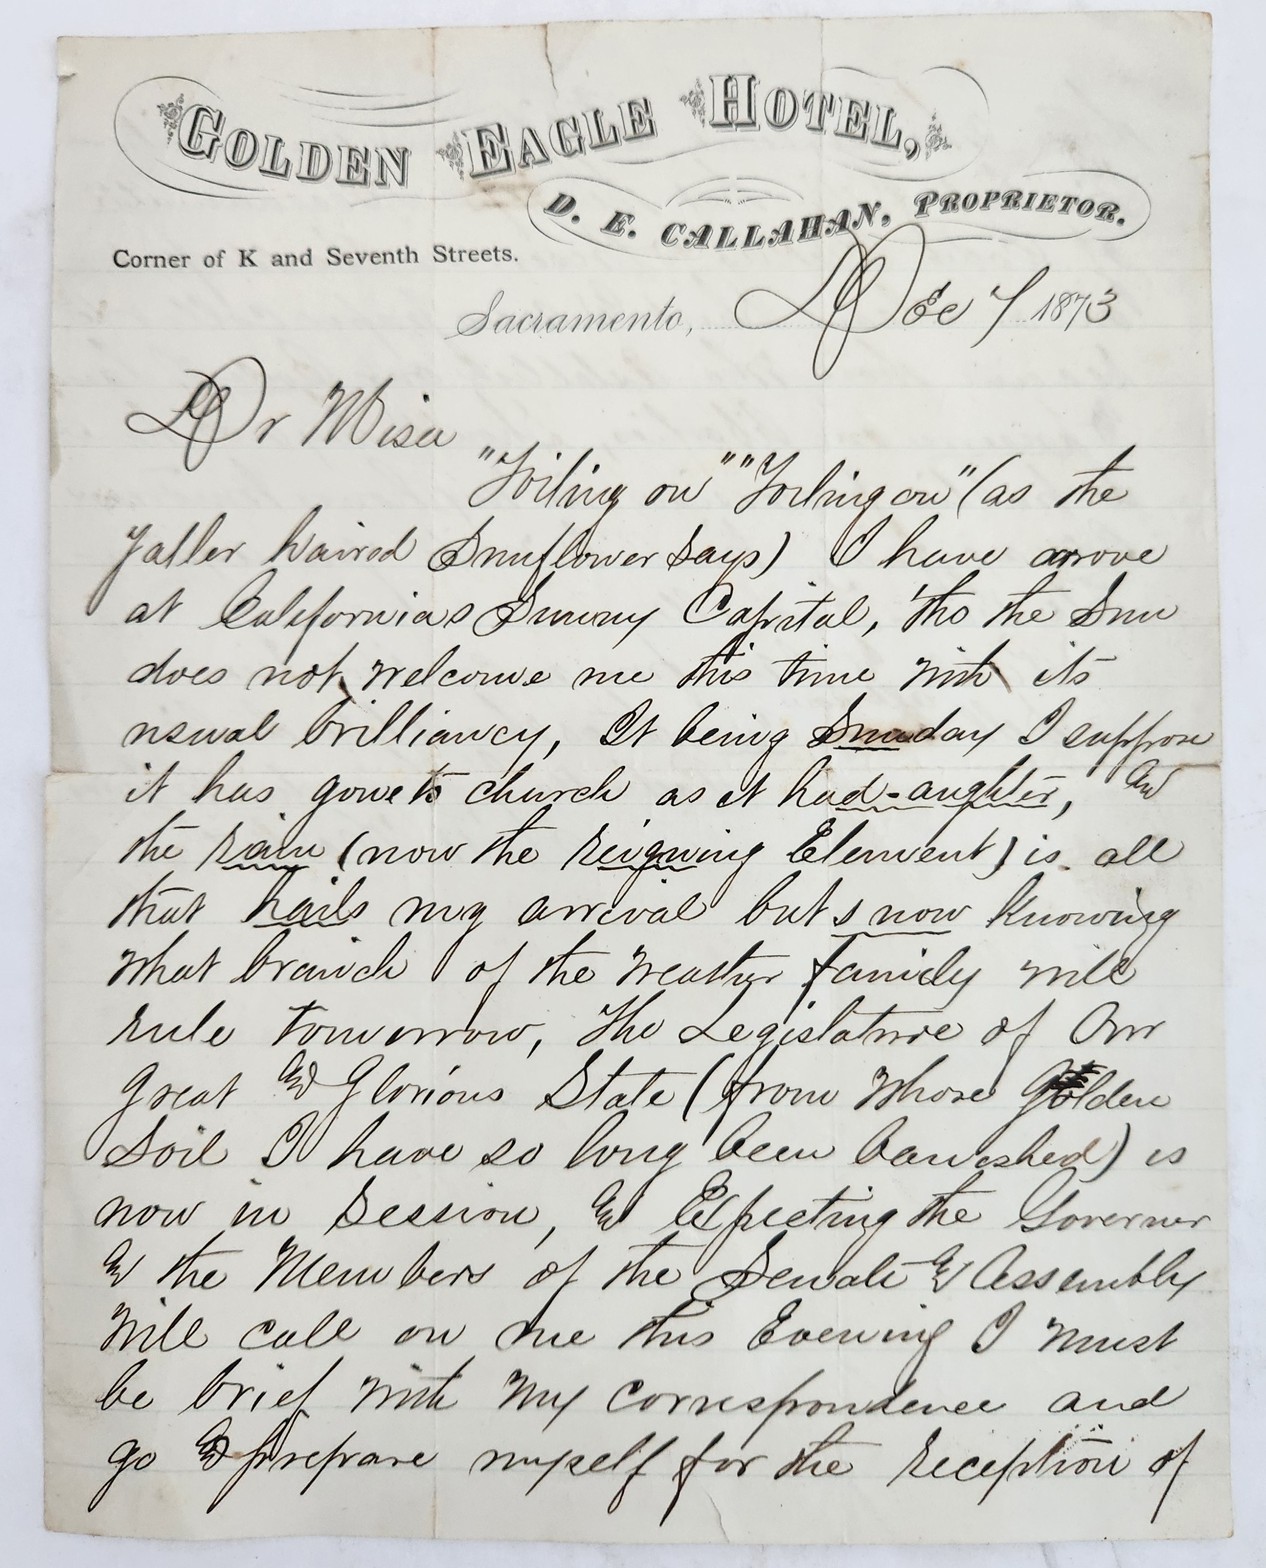 GOLDEN EAGLE HOTEL,
D. E. CALLAHAN, PROPRIETOR.
Corner of K and Seventh Streets.
Sacramento, Dec 7 1873
Dr Misa
"Toiling on" "Toiling on" (as the
yaller haired Sunflower says) I have arrove
at Californias Sunny Capital, 'tho the Sun
does not welcome me this time with its
usual brilliancy, It being Sunday I suppose
it has gone to church as it had-aughter, &
the rain (now the reigning Element) is all
that hails my arrival but snow knowing
what branch of the weather family will
rule tomorrow, The Legislature of Our
Great & Glorious State (from whose Golden
Soil I have so long been banished) is
now in Session, & Expecting the Governer
& the Members of the Senate & Assembly
will call on me this Evening I must
be brief with my correspondence and
go & prepare myself for the reception of